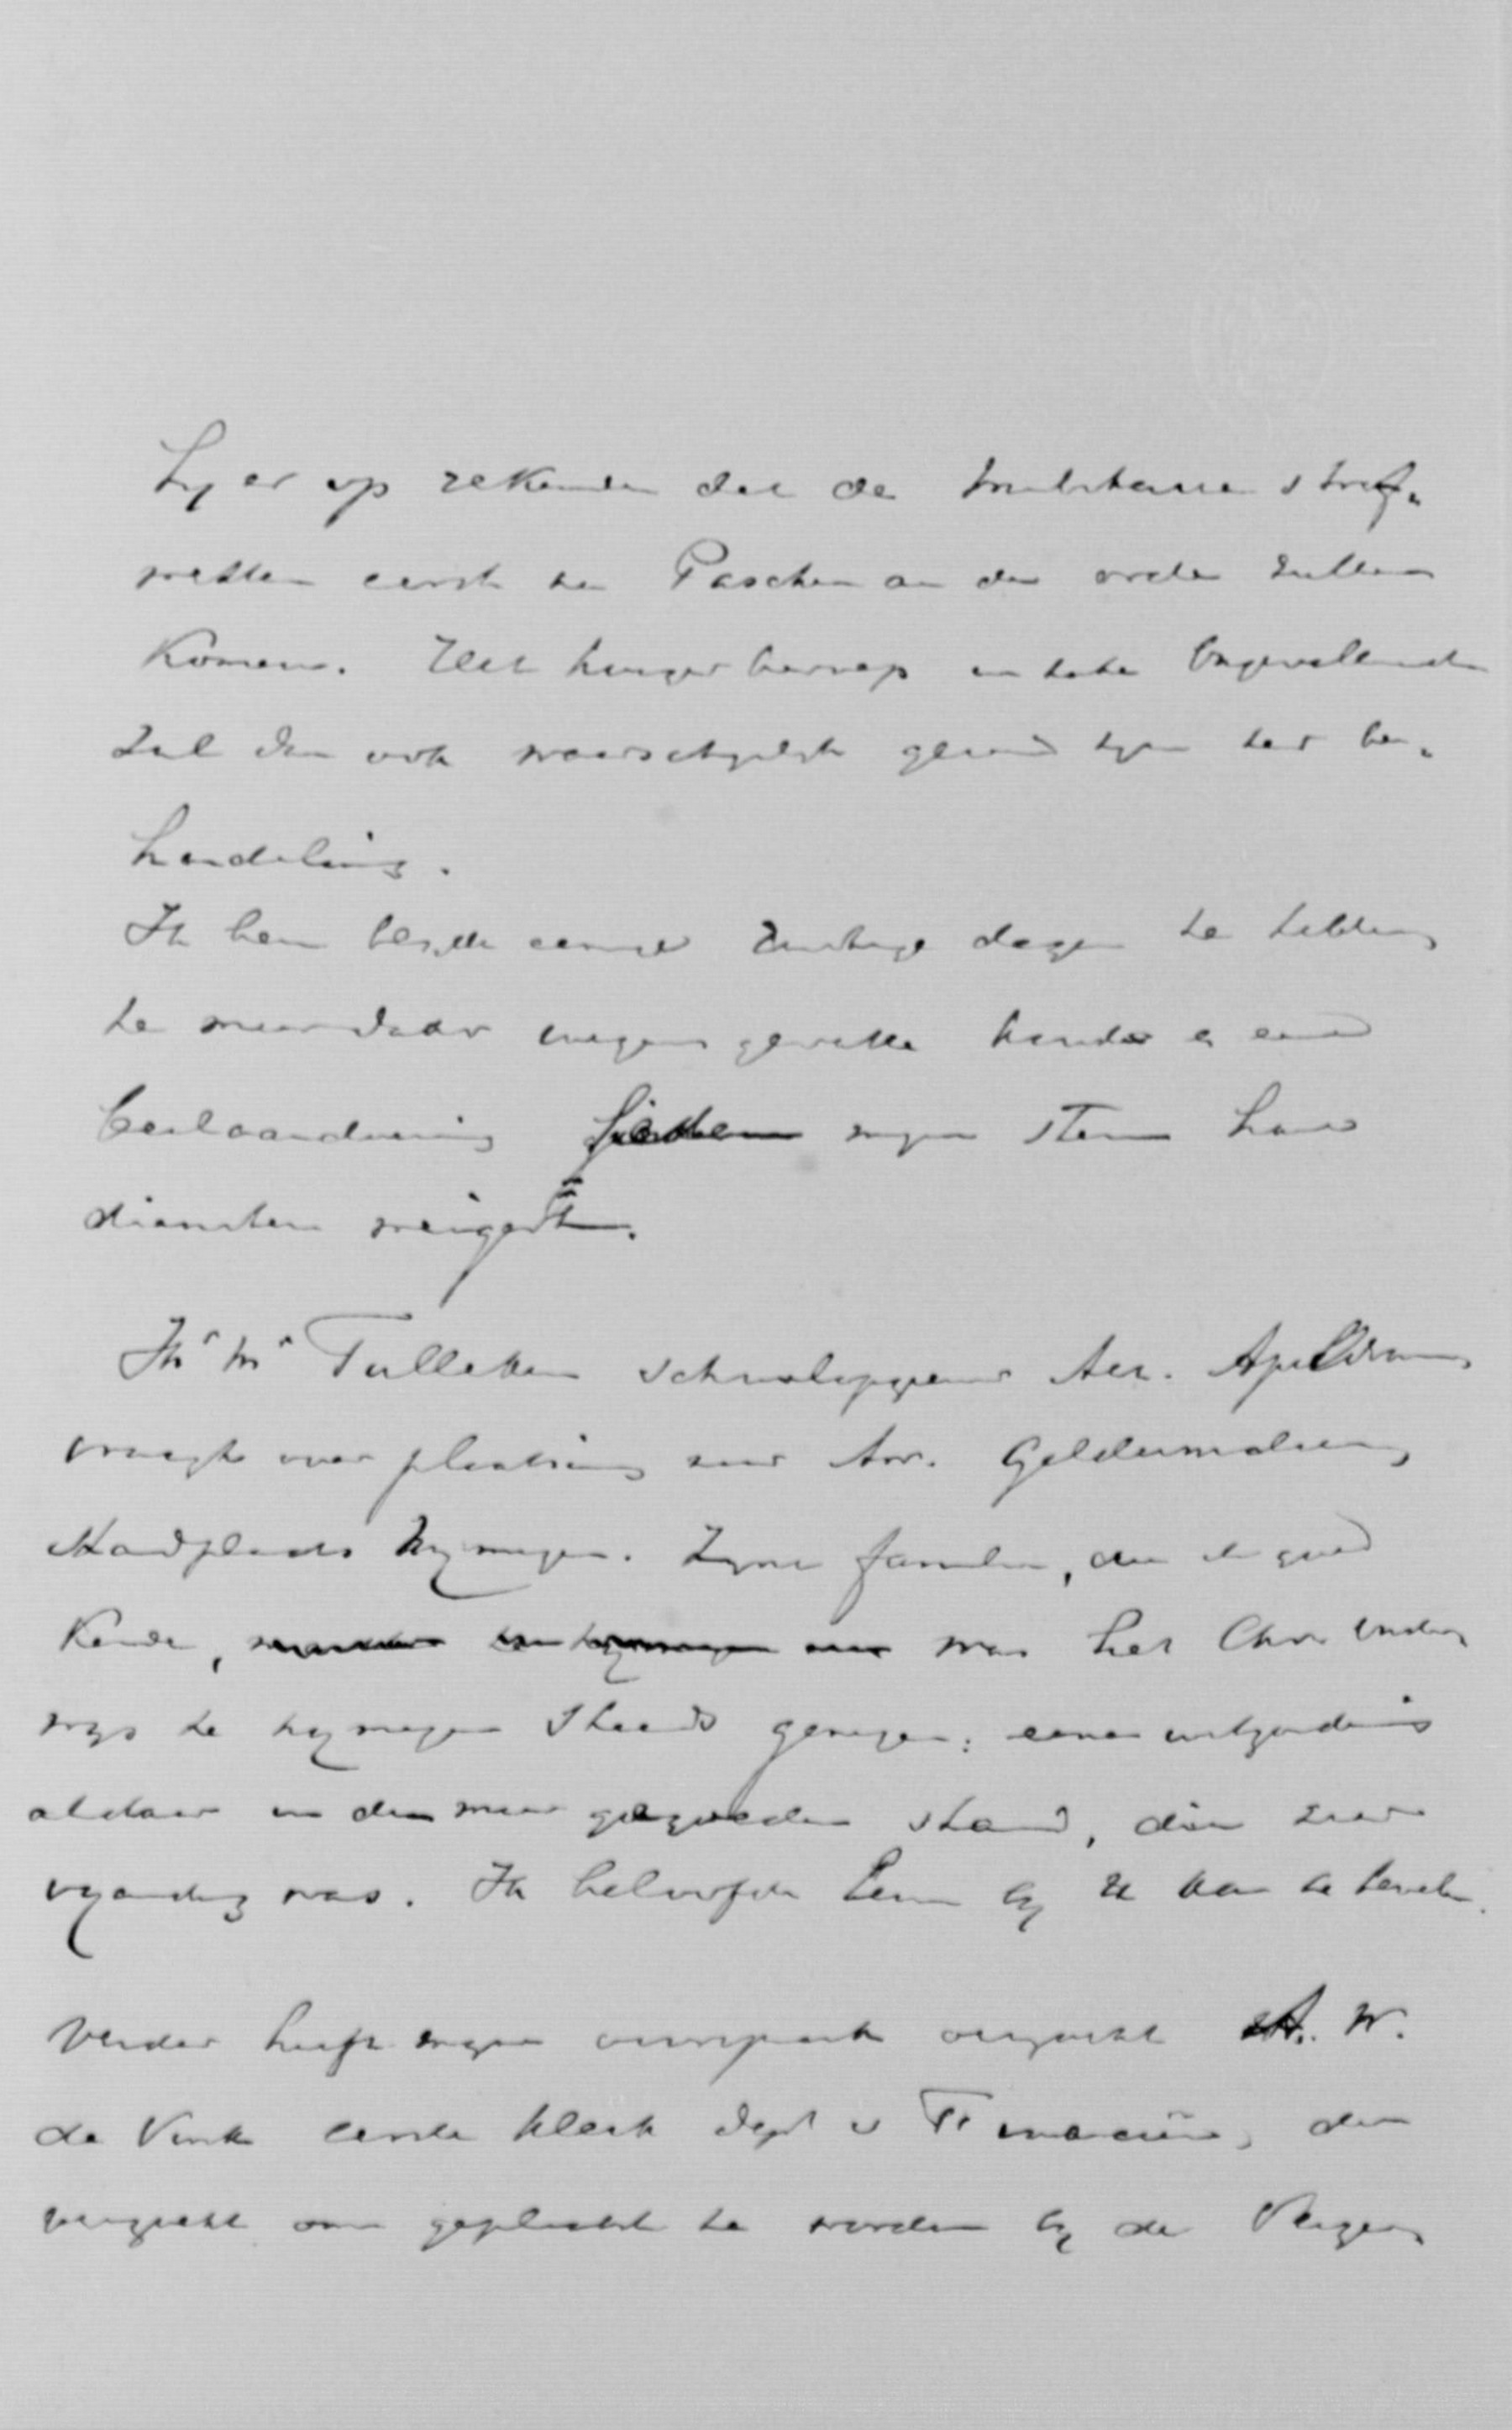 hy er op rekende dat de militaire straf-
wetten eerst na Paschen aan de orde zullen
komen. Het hooger beroep in zake Ongevallenwet
zal dan ook waarschijnlijk gereed zijn ter be-
handeling.
Ik ben bepaald eenige rustige dagen te
te meer daar wegens gevatte koude en eene
mijn stem haar
diensten weigert.
Jhr Mr Tulleken schoolopziener Arr. Apeldoorn
vraagt overplaatsing naar Arr. Geldermalsen
standplaats Nymegen. Zyne familie, die ik goed
kende, was het Chr. onder-
wys te Nymegen steeds genegen: eene uitzondering
aldaar in den meer gegoeden stand, die zeer
vyandig was. Ik beloofde hem by U aan te bevelen.
Verder heeft myne voorspraak verzocht A. W.
de Vink eerste klerk Dept v Financiën, die
verzoekt om geplaatst te worden by de